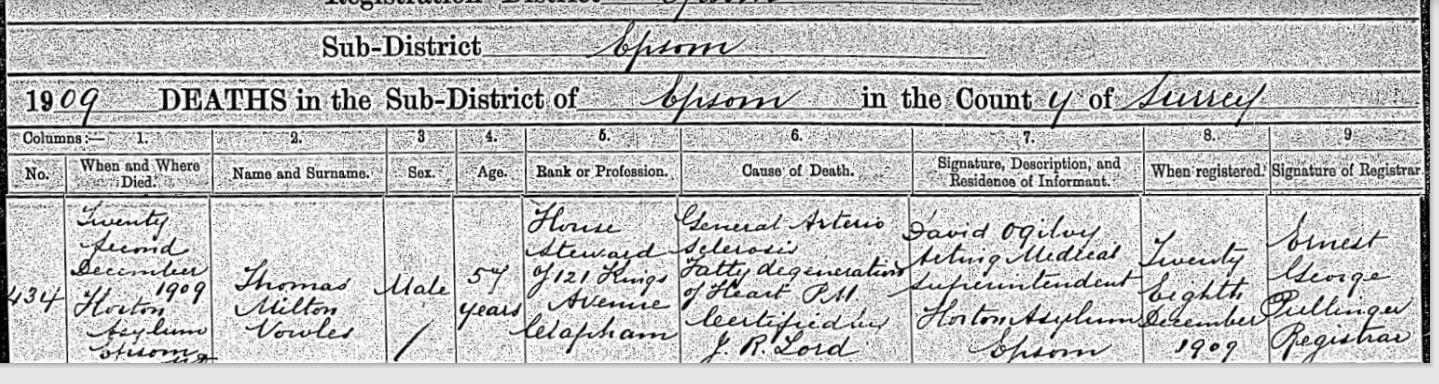 Registration District Epsom
Sub-District Epsom
1909 DEATHS in the Sub-District of Epsom in the County of Surrey
Columns:— 1. 2. 3 4. 5. 6. 7. 8. 9
No. When and Where Died. Name and Surname. Sex. Age. Rank or Profession. Cause of Death. Signature, Description, and Residence of Informant. When registered. Signature of Registrar
434
Twenty
Second
December
1909
Horton
Asylum
Epsom
Thomas
Milton
Vowles
Male
57
years
House
Steward
of 121 Kings
Avenue
Clapham
General Arterio
Sclerosis
Fatty degeneration
of Heart P.M.
Certified by
J. R. Lord
David Ogilvy
Acting Medical
Superintendent
Horton Asylum
Epsom
Twenty
Eighth
December
1909
Ernest
George
Pullinger
Registrar